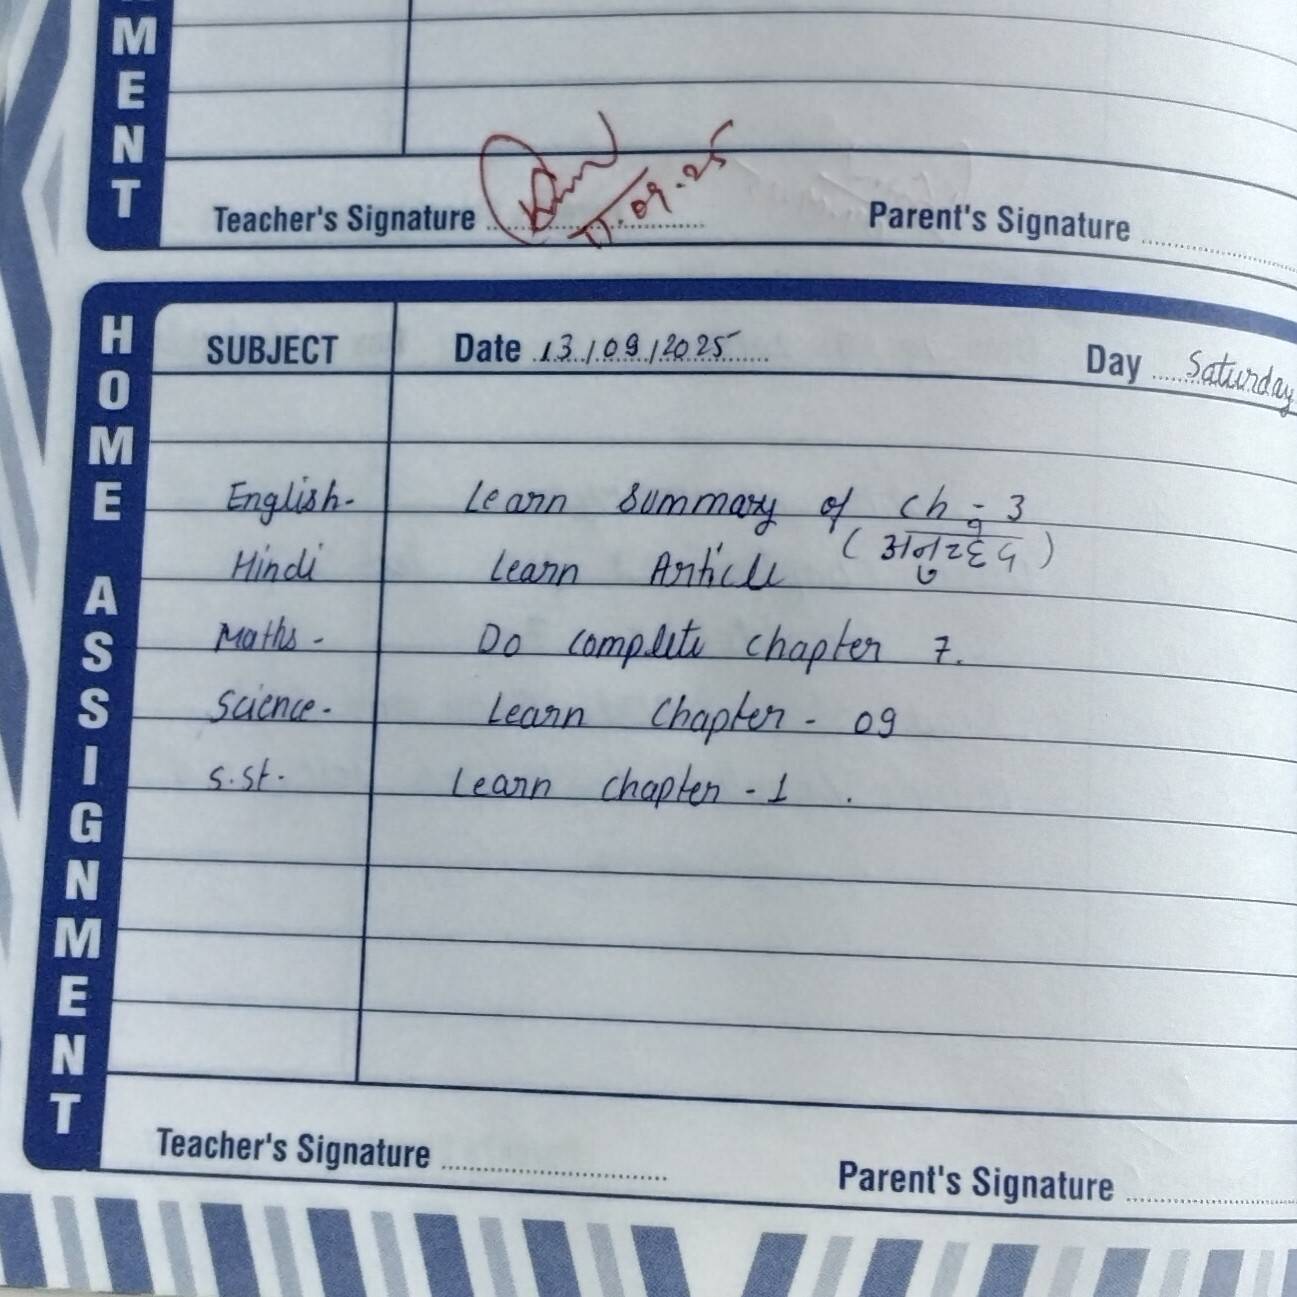 MENT
Teacher's Signature
11.09.25
Parent's Signature
HOME ASSIGNMENT
SUBJECT Date 13/09/2025 Day Saturday
English- Learn Summary of Ch-3
Hindi Learn Article (अनुच्छेद)
Maths- Do complete chapter 7.
Science- Learn Chapter-09
S.St. Learn chapter-1.
Teacher's Signature
Parent's Signature